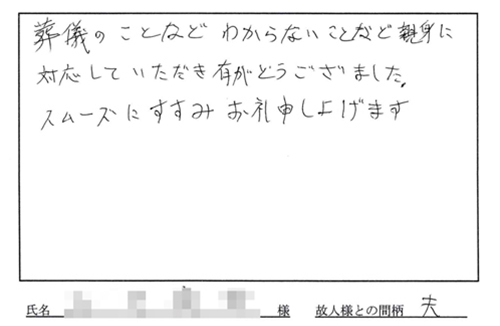 葬儀のことなど わからないことなど親身に
対応していただき有がとうございました。
スムーズにすすみ お礼申しよげます
氏名 様 故人様との間柄 夫